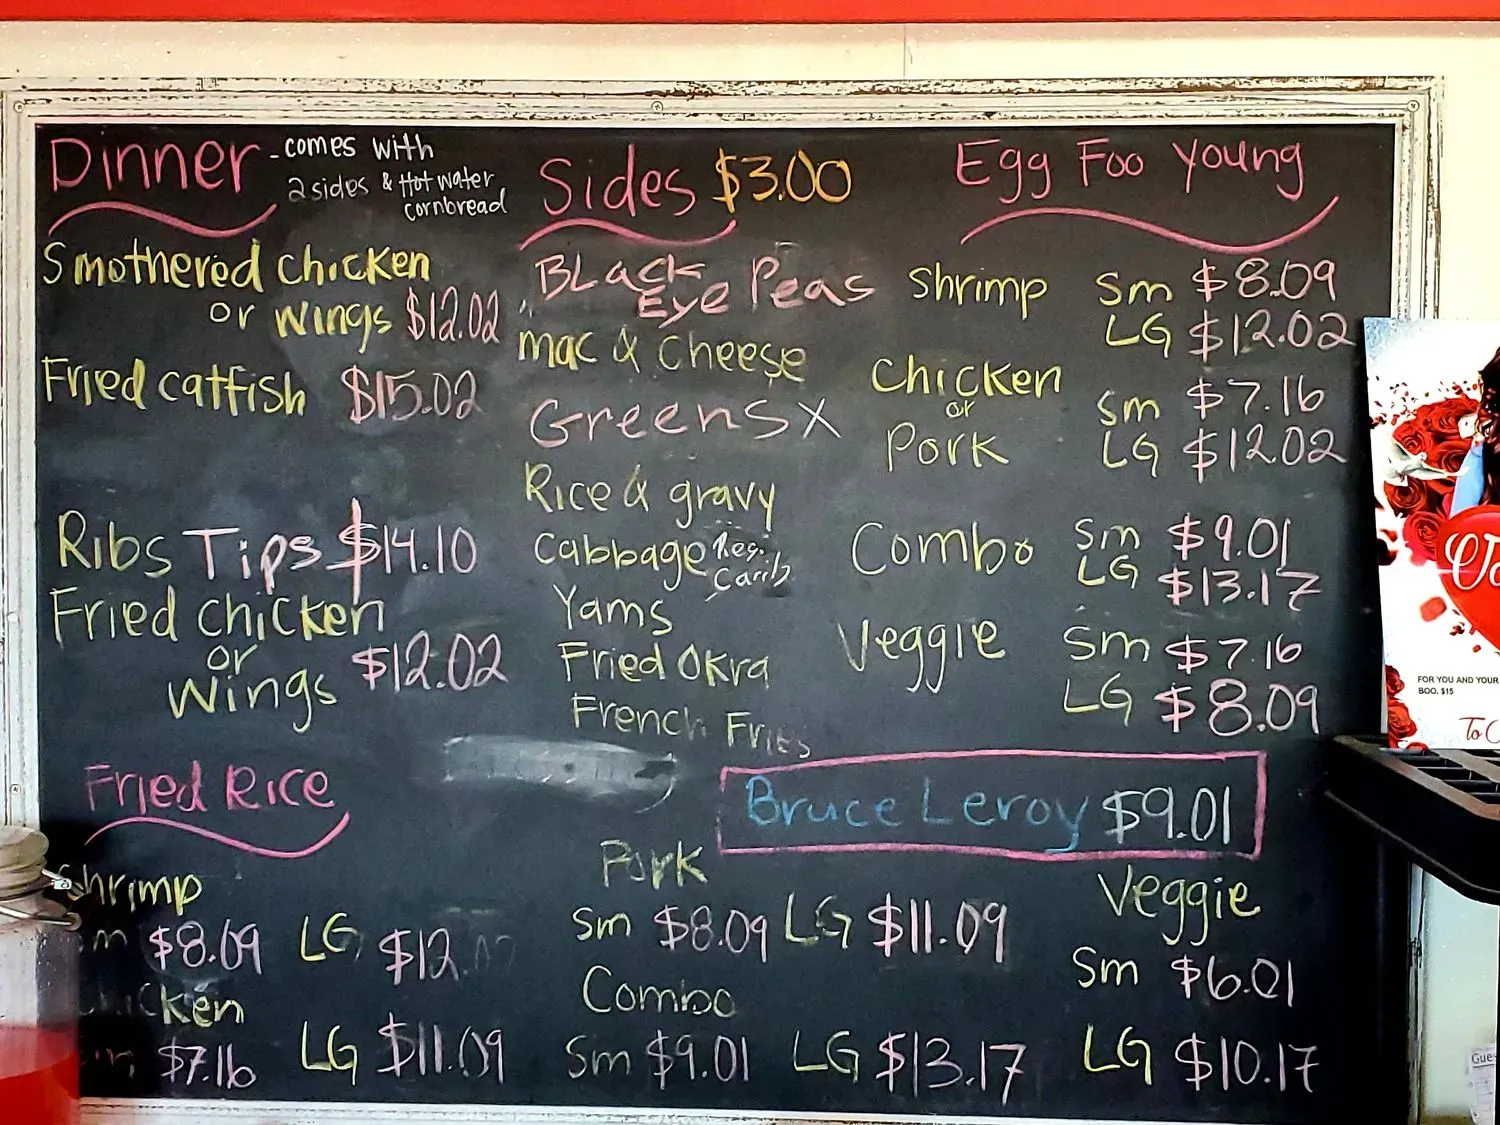 Dinner - comes with
2 sides & Hot water
cornbread
Smothered chicken
or wings $12.02
Fried catfish $15.02
Ribs Tips $14.10
Fried chicken
or
wings $12.02
Sides $3.00
Black
Eye Peas
mac & cheese
Greens X
Rice & gravy
Cabbage Reg.
Yams
Fried Okra
French Fries
Egg Foo Young
Shrimp Sm $8.09
LG $12.02
Chicken
or
Pork
Sm $7.16
LG $12.02
Combo Sm $9.01
LG $13.17
Veggie Sm $7.16
LG $8.09
Bruce Leroy $9.01
Fried Rice
Shrimp
$8.09 LG $12.02
$7.16 LG $11.09
Pork
Sm $8.09 LG $11.09
Combo
Sm $9.01 LG $13.17
Veggie
Sm $6.01
LG $10.17
FOR YOU AND YOUR
BOO. $15
To